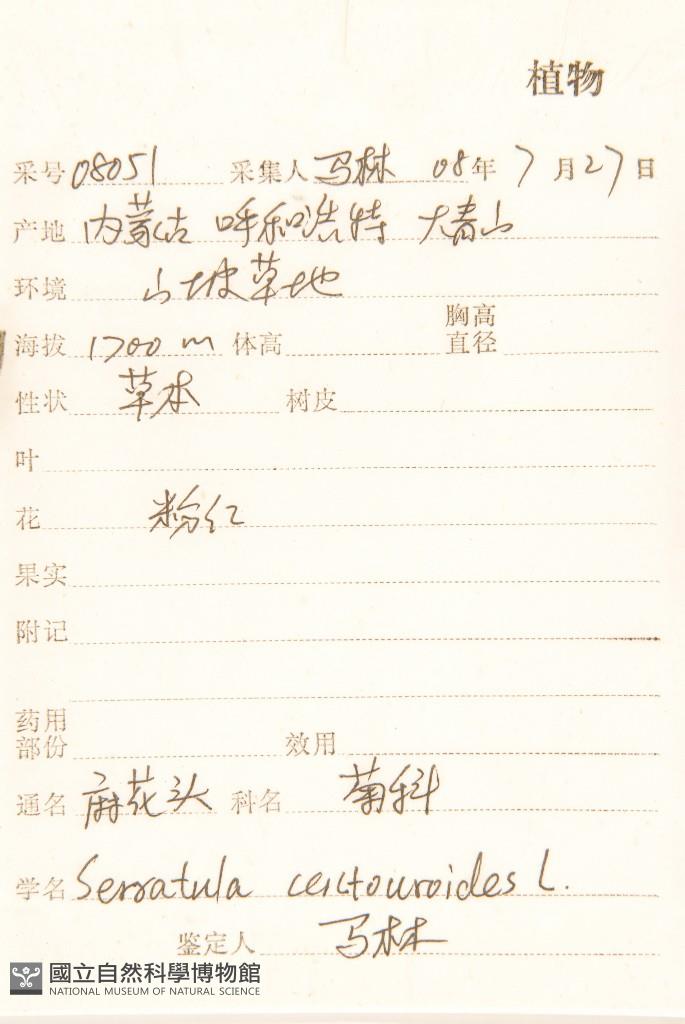 植物
采号 08051 采集人 马林 08年 7月27日
产地 内蒙古 呼和浩特 大青山
环境 山坡草地
海拔 1700 m 体高 胸高直径
性状 草本 树皮
叶
花 粉红
果实
附记
药用部份 效用
通名 麻花头 科名 菊科
学名 Serratula centouroides L.
鉴定人 马林
國立自然科學博物館
NATIONAL MUSEUM OF NATURAL SCIENCE